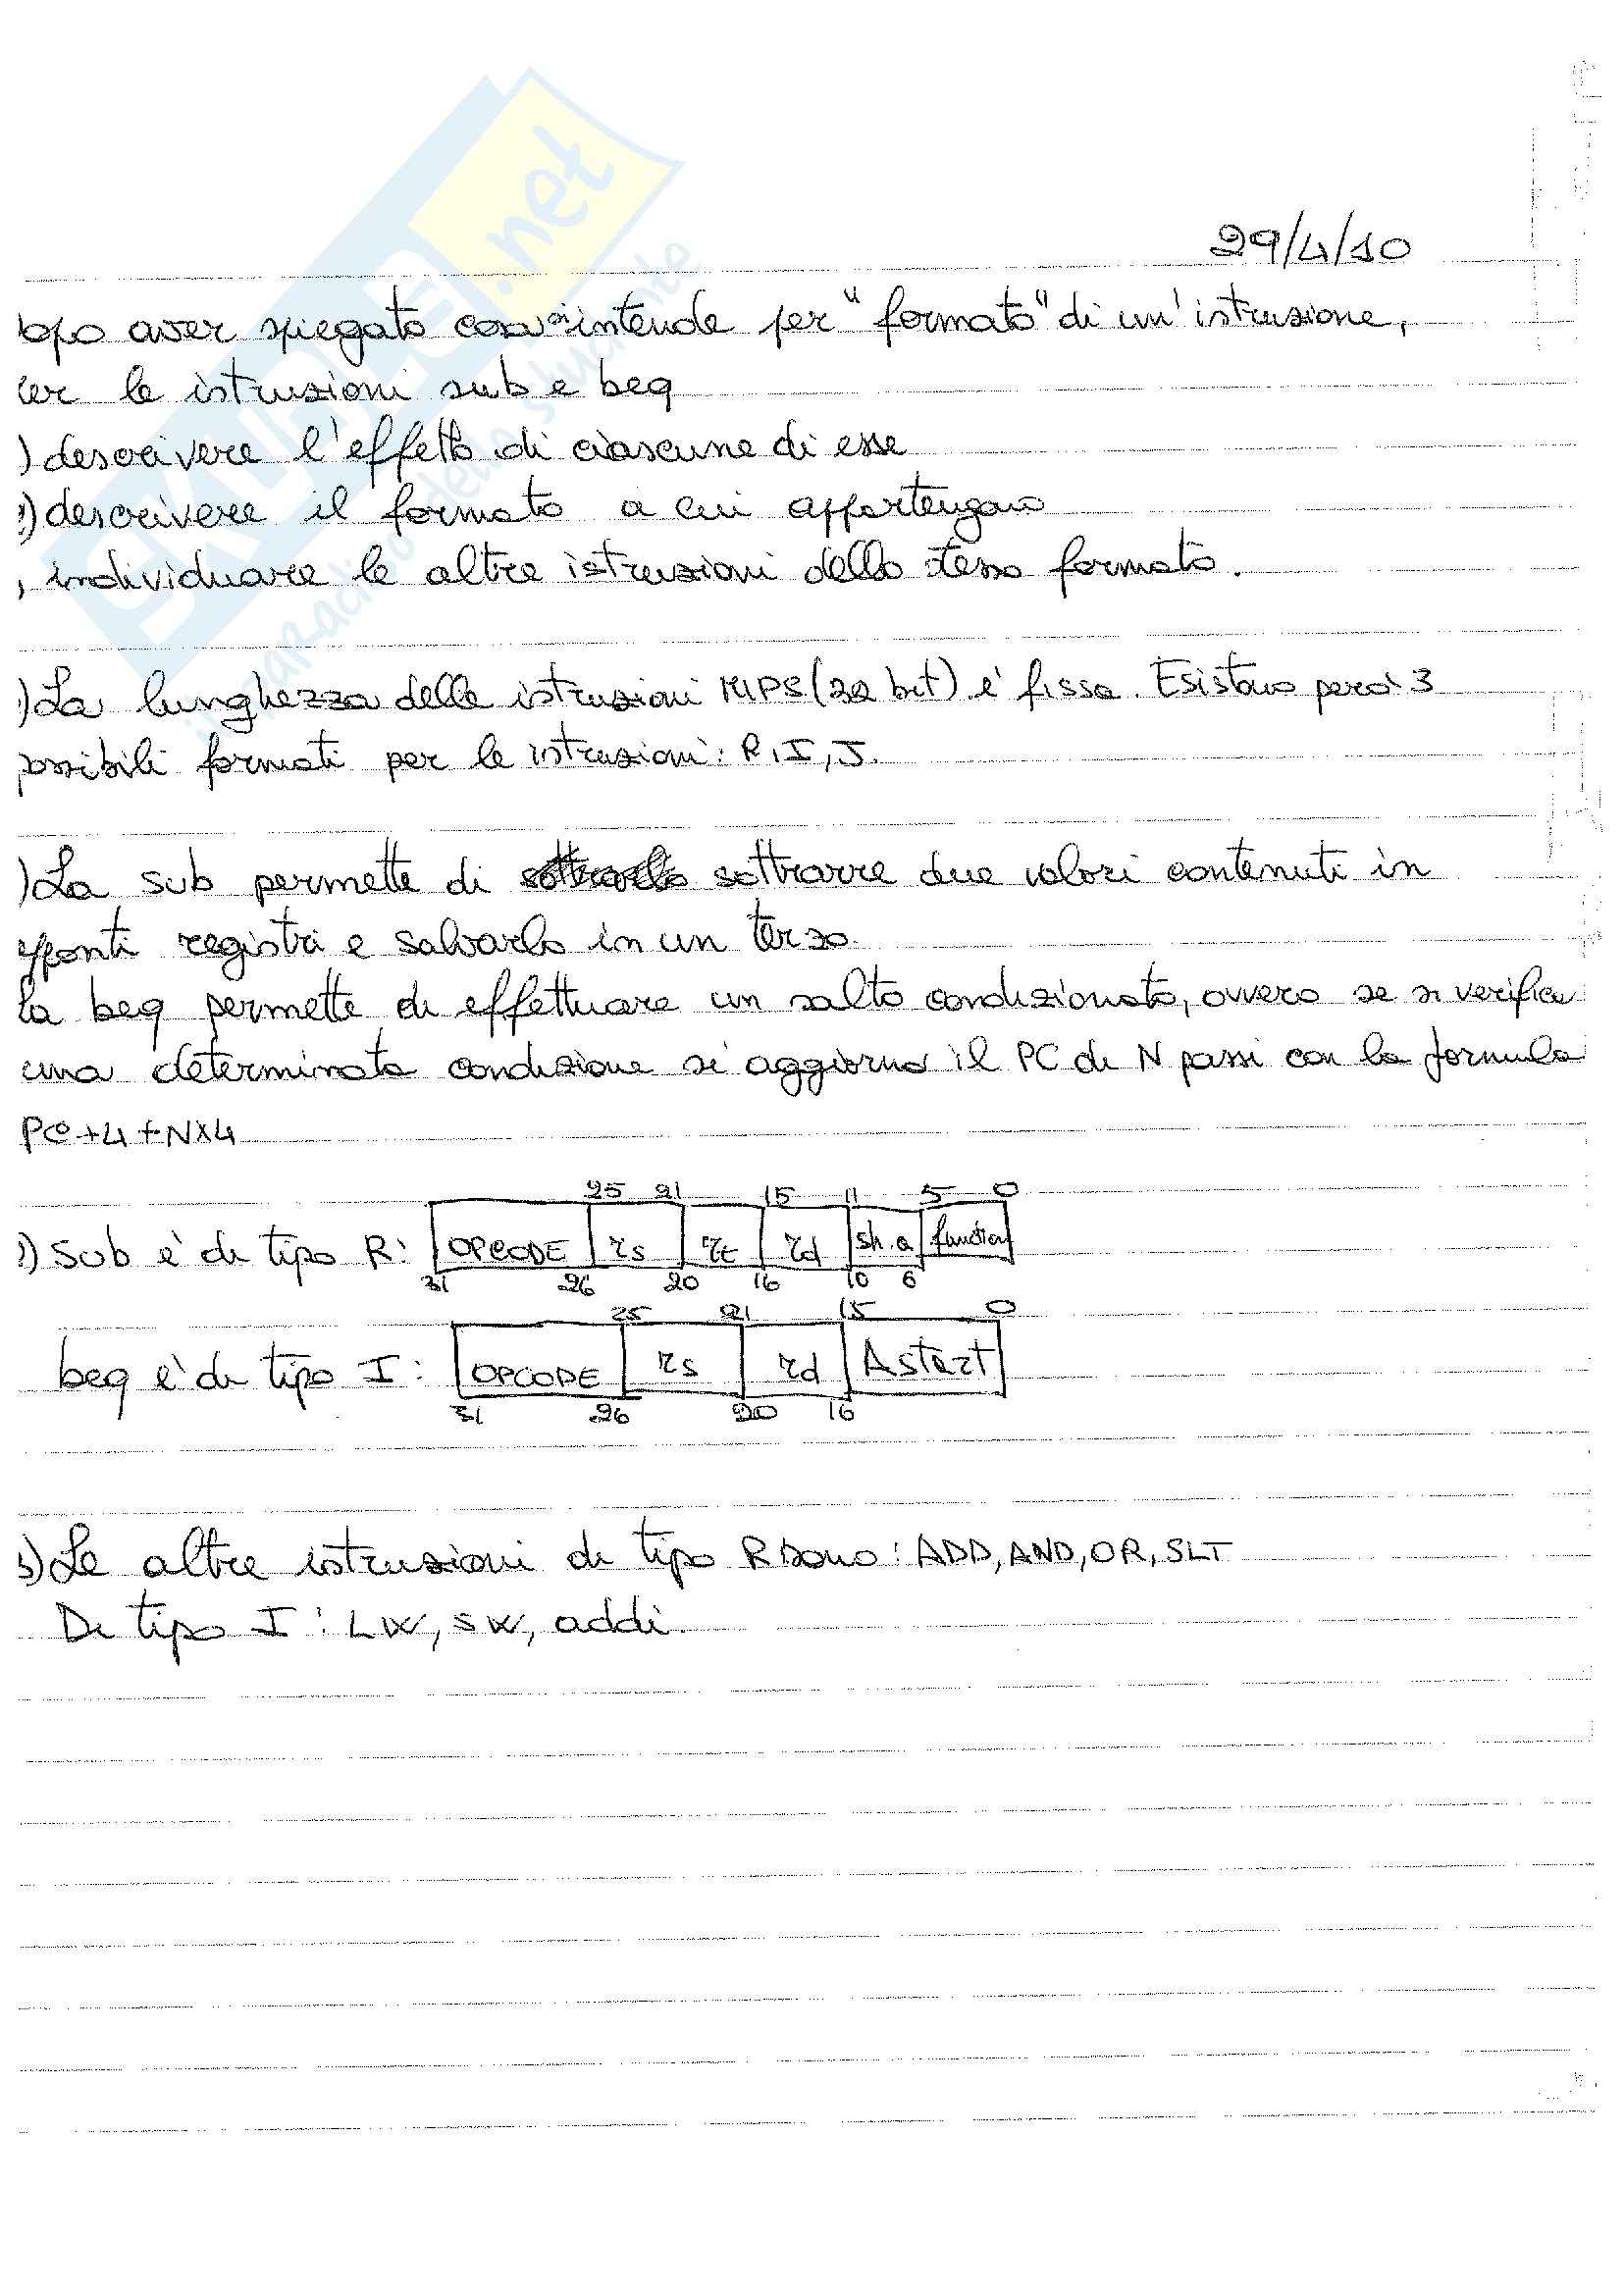 29/4/10
opo aver spiegato cosa si intende per "formato" di un'istruzione,
er le istruzioni sub e beq
) descrivere l'effetto di ciascuna di esse
) descrivere il formato a cui appartengono
, individuare le altre istruzioni dello stesso formato.
) La lunghezza delle istruzioni MIPS (32 bit) è fissa. Esistono però 3
possibili formati per le istruzioni: R, I, J.
) La sub permette di sottrarre due valori contenuti in
registri e salvarlo in un terzo.
la beq permette di effettuare un salto condizionato, ovvero se si verifica
una determinata condizione si aggiorna il PC di N passi con la formula
PC+4+NX4
25 21 15 11 5 0
) Sub è di tipo R: OPCODE rs rt rd sh.a function
31 26 20 16 10 6
25 21 15 0
beq è di tipo I: OPCODE rs rd Astart
31 26 20 16
3) Le altre istruzioni di tipo R sono: ADD, AND, OR, SLT
Di tipo I: LW, SW, addi.
SKUOLA.net